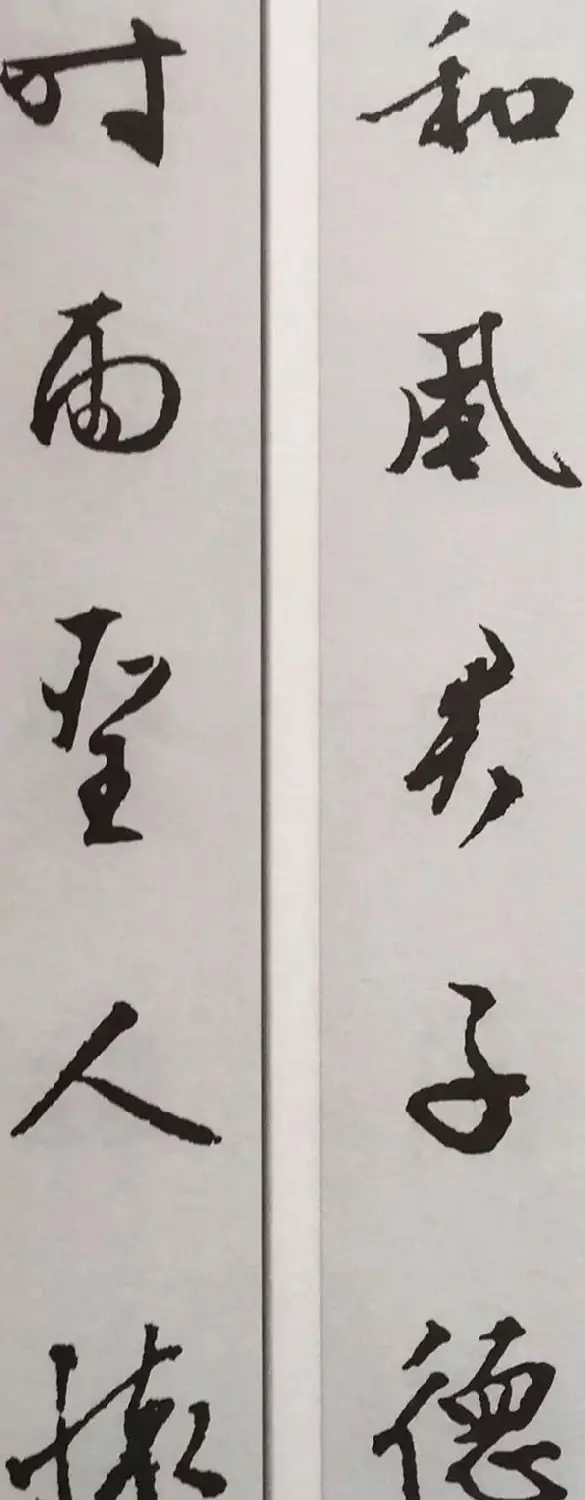 和風君子德
时雨聖人懷